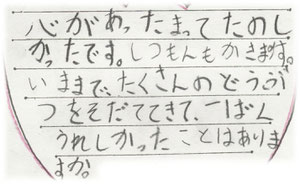 心があったまってたのし
かったです。しつもんもかきます。
いままで、たくさんのどうぶ
つをそだててきて、一ばん
うれしかったことはありま
すか。